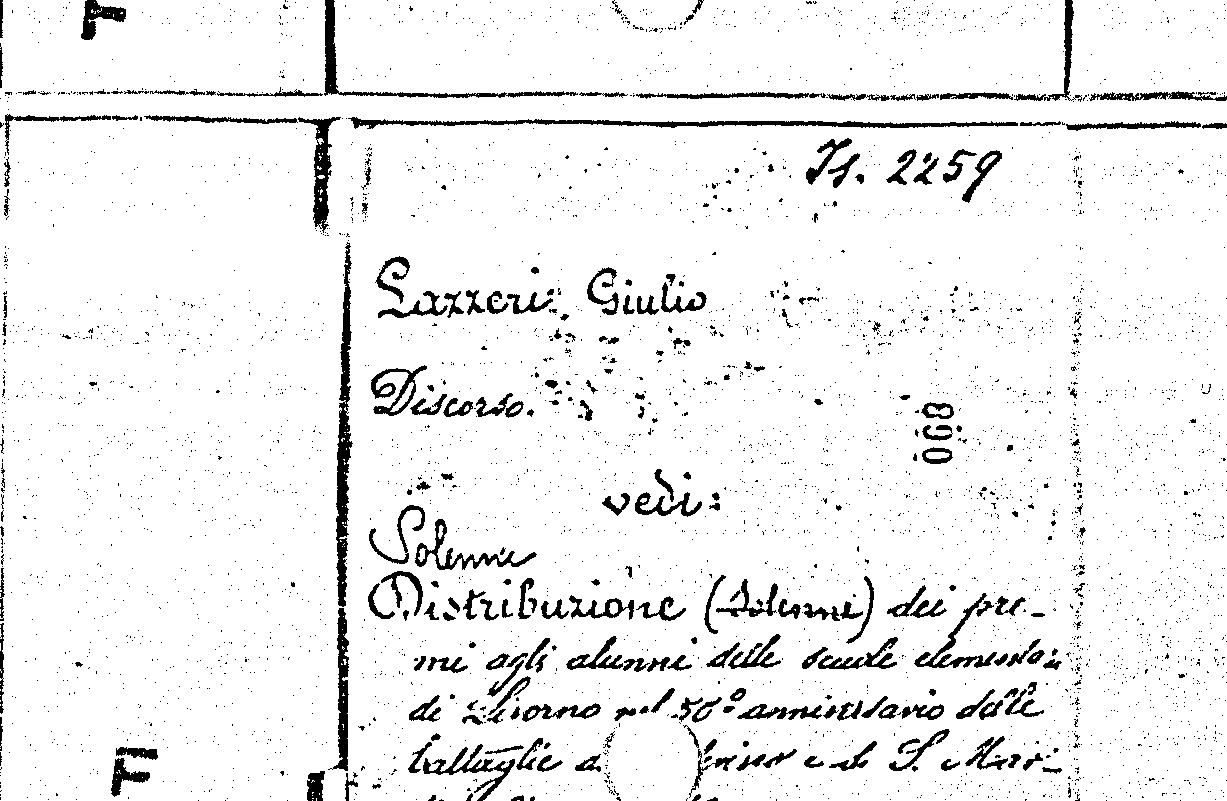 Is. 2259
Lazzeri, Giulio
Discorso.
890
vedi:
Solenne
Distribuzione (Solenne) dei pre-
mi agli alunni delle scuole elementari
di Livorno nel 50° anniversario delle
battaglie e di S. Mar-